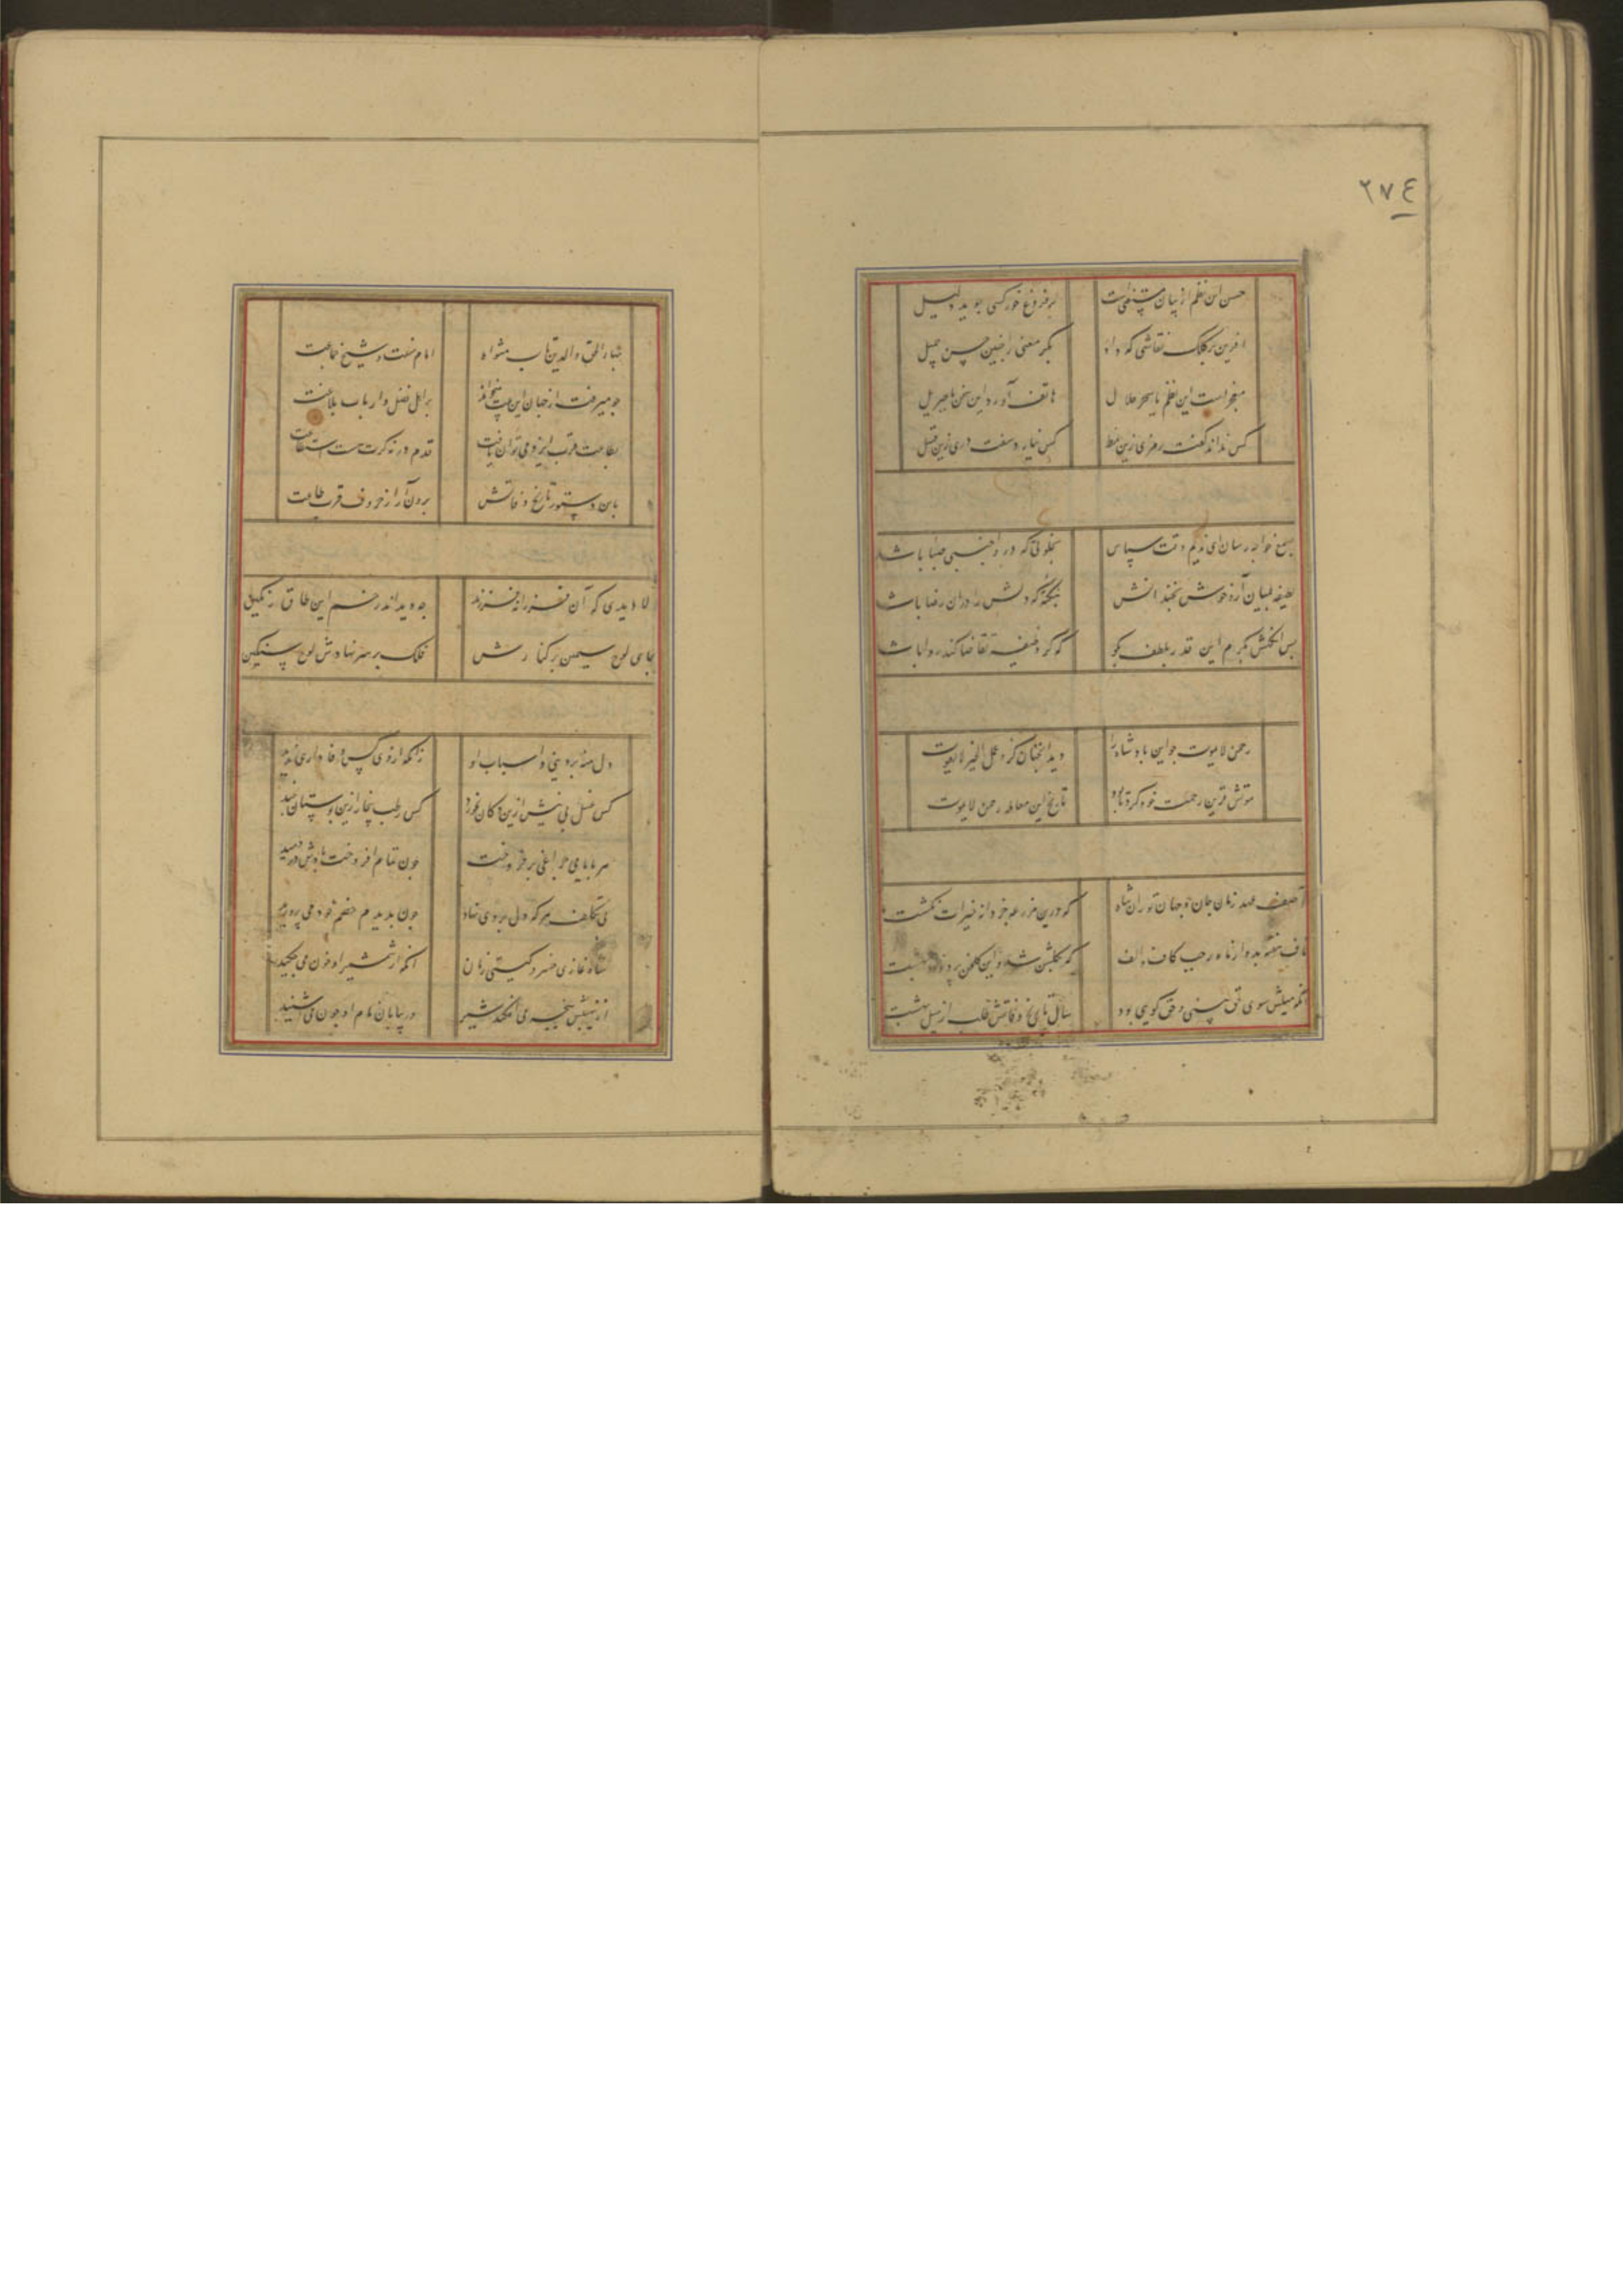 ٢٧٤
حسن این نظم از بیان مستغنی است بر فروغ خور کسی جوید دلیل
آفرین بر کلک نقاشی که داد بکر معنی را چنین حسن جمیل
معجز است این نظم یا سحر حلال هاتف آورد این سخن یا جبریل
کس نداند گفت رمزی زین نمط کس نیارد سفت دری زین قبیل
بسمع خواجه رسان ای ندیم وقت شناس بخلوتی که درو اجنبی صبا باشد
لطیفه بمیان آر و خوش بخندانش بنکته که دلش را دران رضا باشد
پس انکهش بکرم این قدر بلطف بگو که گر وظیفه تقاضا کند روا باشد
رحمن لایموت چو این پادشاه را دید انچنان کزو عمل الخیر لایفوت
موتش قرین رحمت خود کرد تا بود تاریخ این معامله رحمن لایموت
آصف عهد زمان جان جهان تورانشاه که درین مزرعه جز دانه خیرات نکشت
ناف هفته بد و از ماه رجب کاف و الف که بگلشن شد و این گلخن پر دود بهشت
انکه میلش سوی حق بینی و حق گویی بود سال تاریخ وفاتش طلب از میل بهشت
بهاء الحق و الدین طاب مثواه امام سنت و شیخ جماعت
چو میرفت از جهان این بیت میخواند بر اهل فضل و ارباب بلاغت
بطاعت قرب ایزد می توان یافت قدم در نه گرت هست استطاعت
باین دستور تاریخ وفاتش برون آر از حروف قرب طاعت
دلا دیدی که آن فرزانه فرزند چه دید اندر خم این طاق رنگین
بجای لوح سیمین در کنارش فلک بر سر نهادش لوح سنگین
دل منه بر دنیی و اسباب او زانکه از وی کس وفاداری ندید
کس عسل بی نیش ازین دکان نخورد کس رطب بیخار ازین بوستان نچید
هر بایامی چراغی بر فروخت چون تمام افروخت بادش در دمید
بی تکلف هر که دل بر وی نهاد چون بدیدم خصم خود می پرورید
شاه غازی خسرو گیتی ستان انکه از شمشیر او خون می چکید
از نهیبش پنجه می افکند شیر در بیابان نام او چون می شنید